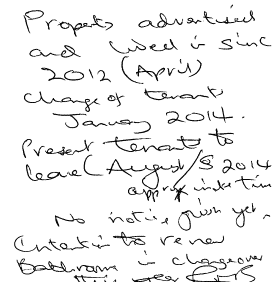 Property advertised
and lived in sinc
2012 (April)
change of tenant
January 2014.
Present tenant to
leave (August/S 2014
approx
No notice given yet.
Intention to renew
Bathroom in changeover
this year